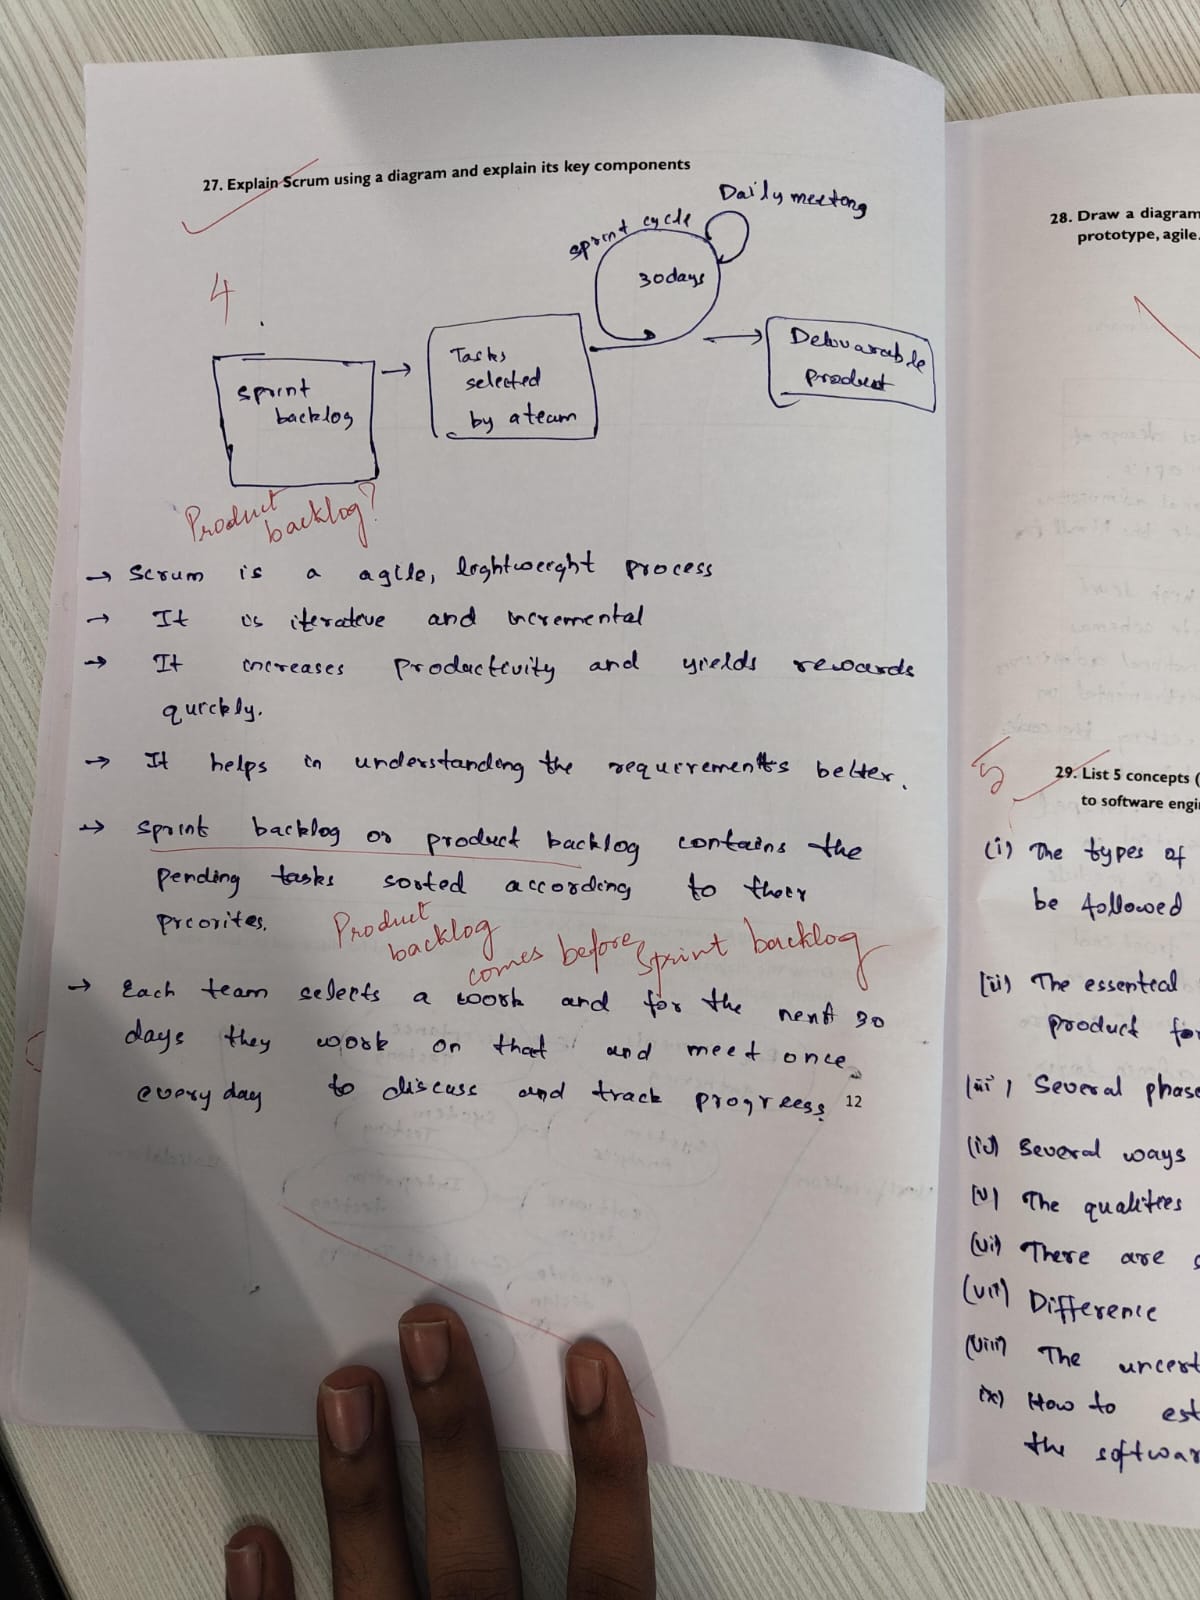 27. Explain Scrum using a diagram and explain its key components
4
Daily meeting
sprint cycle
30days
sprint
backlog
Tasks
selected
by a team
Product
backlog?
→ Scrum is a agile, lightweight process
→ It is iterative and incremental
→ It increases productivity and yields rewards
quickly.
→ It helps in understanding the requirements better.
→ sprint backlog or product backlog contains the
pending tasks sorted according to their
Product
backlog
comes before Sprint backlog
→ Each team selects a work and for the next 30
days they work on that and meet once
every day to discuss and track progress
12
28. Draw a diagram
prototype, agile.
5
29. List 5 concepts (
to software engi
(i) The types of
be followed
(ii) The essential
product for
(iii) Several phase
(iv) Several ways
(v) The qualities
(vi) There are
(vii) Difference
(viii) The uncert
(ix) How to est
the softwar